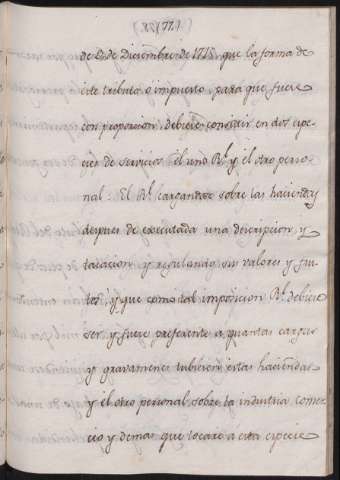 (77.)
de 9 de Diciembre de 1715 que la forma de
este tributo o impuesto, para que fuese
con proporcion debiese consistir en dos espe-
cies de servicios el uno Rl. y el otro perso-
nal: El Rl. cargandose sobre las haciendas
despues de executada una descripcion, y
tasacion y regulando sus valores y fru-
tos, y que como tal imposicion Rl. debiese
ser y fuese preferente a quantas cargas
y gravamenes tubiesen estas haciendas
y el otro personal sobre la industria comer-
cio y demas que tocare a esta especie